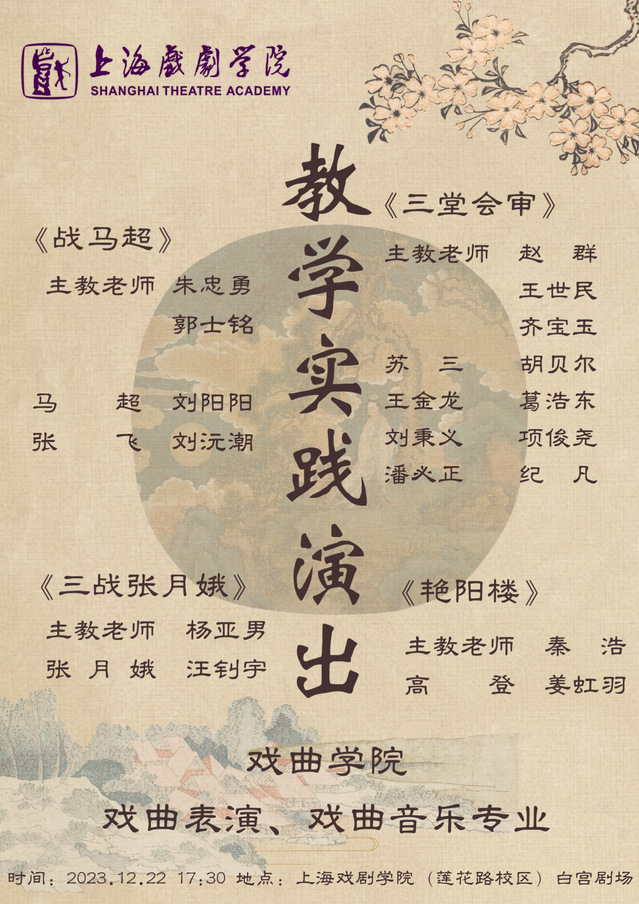 上海戏剧学院
SHANGHAI THEATRE ACADEMY
教学实践演出
《战马超》
主教老师 朱忠勇
郭士铭
马 超 刘阳阳
张 飞 刘沅潮
《三堂会审》
主教老师 赵 群
王世民
齐宝玉
苏 三 胡贝尔
王金龙 葛浩东
刘秉义 项俊尧
潘必正 纪 凡
《三战张月娥》
主教老师 杨亚男
张 月 娥 汪钊宇
《艳阳楼》
主教老师 秦 浩
高 登 姜虹羽
戏曲学院
戏曲表演、戏曲音乐专业
时间：2023.12.22 17:30 地点：上海戏剧学院（莲花路校区）白宫剧场